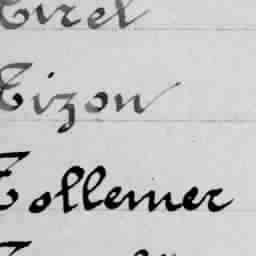 Tirel
Tizon
Tollemer